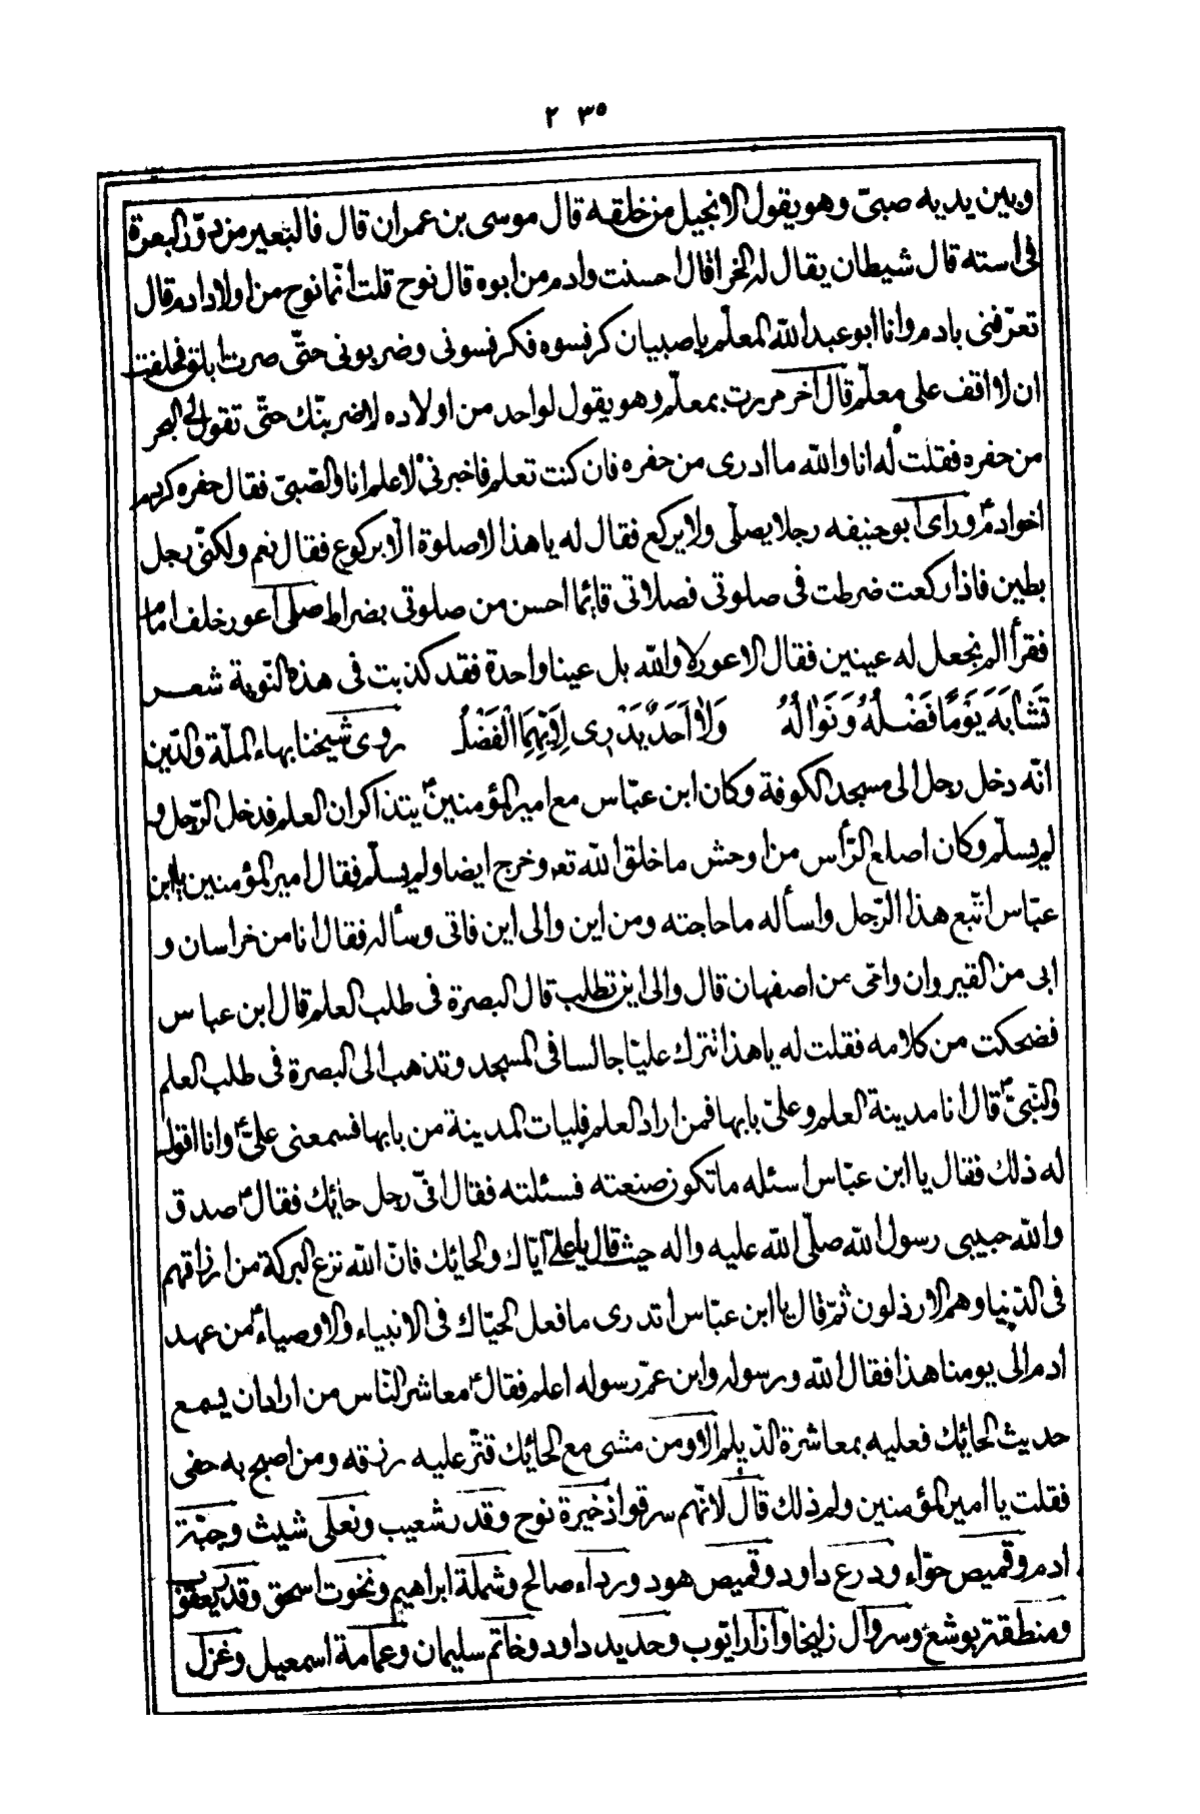 ٢٣٥
وبين يديه صبىّ وهو يقول الانجيل من خلقه قال موسى بن عمران قال فالبعير من دوّر البعرة
فى استه قال شيطان يقال له الخرا فقال احسنت وادم من ابوه قال نوح قلت انّما نوح من اولاد ادم قال
تعرّفنى بادم وانا ابو عبد الله المعلّم يا صبيان كرفسوه فكرفسونى وضربونى حتّى صرت ابلق فحلفت
ان لا اقف على معلّم قال اخر مررت بمعلّم وهو يقول لواحد من اولاده لاضربنّك حتّى تقول لى البحر
من حفره فقلت له انا والله ما ادرى من حفره فان كنت تعلم فاخبرنى لاعلم انا والصّبىّ فقال حفره كريم
اخو ادم وراى ابو حنيفه رجلا يصلّى ولا يركع فقال له يا هذا لا صلوة الّا بركوع فقال نعم ولكنّى رجل
بطين فاذا ركعت ضرطت فى صلوتى فصلاتى قائما احسن من صلوتى بضراط صلى اعور خلف امام
فقرأ الم نجعل له عينين فقال الاعور لا والله بل عينا واحدة فقد كذبت فى هذه النّوبة شعـــر
تَشَابَهَ يَوْمًا فَضْلُهُ وَنَوَالُهُ وَلَا اَحَدٌ يَدْرِى لِاَيِّهِمَا الْفَضْلُ روى شيخنا بهاء الملّة والدّين
انّه دخل رجل الى مسجد الكوفة وكان ابن عبّاس مع امير المؤمنينؑ يتذاكران العلم فدخل الرّجل و
لم يسلّم وكان اصلع الرّأس من اوحش ما خلق الله تعه وخرج ايضا ولم يسلّم فقال امير المؤمنين يا ابن
عبّاس اتّبع هذا الرّجل واسأله ما حاجته ومن اين والى اين فاتى وسأله فقال انا من خراسان و
ابى من القيروان وامّى من اصفهان قال والى اين تطلب قال البصرة فى طلب العلم قال ابن عباس
فضحكت من كلامه فقلت له يا هذا تترك عليّا جالسا فى المسجد وتذهب الى البصرة فى طلب العلم
والنّبىّ قال انا مدينة العلم وعلىّ بابها فمن اراد العلم فليات المدينة من بابها فسمعنى علىّؑ وانا اقول
له ذلك فقال يا ابن عبّاس اسئله ما تكون صنعته فسئلته فقال انّى رجل حائك فقالؑ صدق
والله حبيبى رسول الله صلّى الله عليه واله حيث قال يا علىّ ايّاك والحائك فانّ الله نزع البركة من ارزاقهم
فى الدّنيا وهم الارذلون ثمّ قال يا ابن عبّاس اتدرى ما فعل الحيّاك فى الانبياء والاوصياءؑ من عهد
ادم الى يومنا هذا فقال الله ورسوله وابن عمّ رسوله اعلم فقالؑ معاشر النّاس من اراد ان يسمع
حديث الحائك فعليه بمعاشرة الدّيلم الا ومن مشى مع الحائك قتّر عليه رزقه ومن اصبح به جفى
فقلت يا امير المؤمنين ولم ذلك قال لانّهم سرقوا ذخيرة نوح وقدر شعيب ونعلى شيث وجبّة
ادم وقميص حوّاء ودرع داود وقميص هود ورداء صالح وشملة ابراهيم ونخوت اسحق وقدر يعقوب
ومنطقة يوشع وسروال زليخا وازار ايّوب وحديد داود وخاتم سليمان وعمامة اسمعيل وغزل